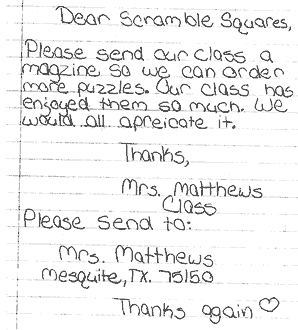 Dear Scramble Squares,
Please send our class a
magzine so we can order
more puzzles. Our class has
enjoyed them so much. We
would all apreicate it.
Thanks,
Mrs. Matthews
Class
Please send to:
Mrs. Matthews
Mesquite, TX. 75150
Thanks again ♡